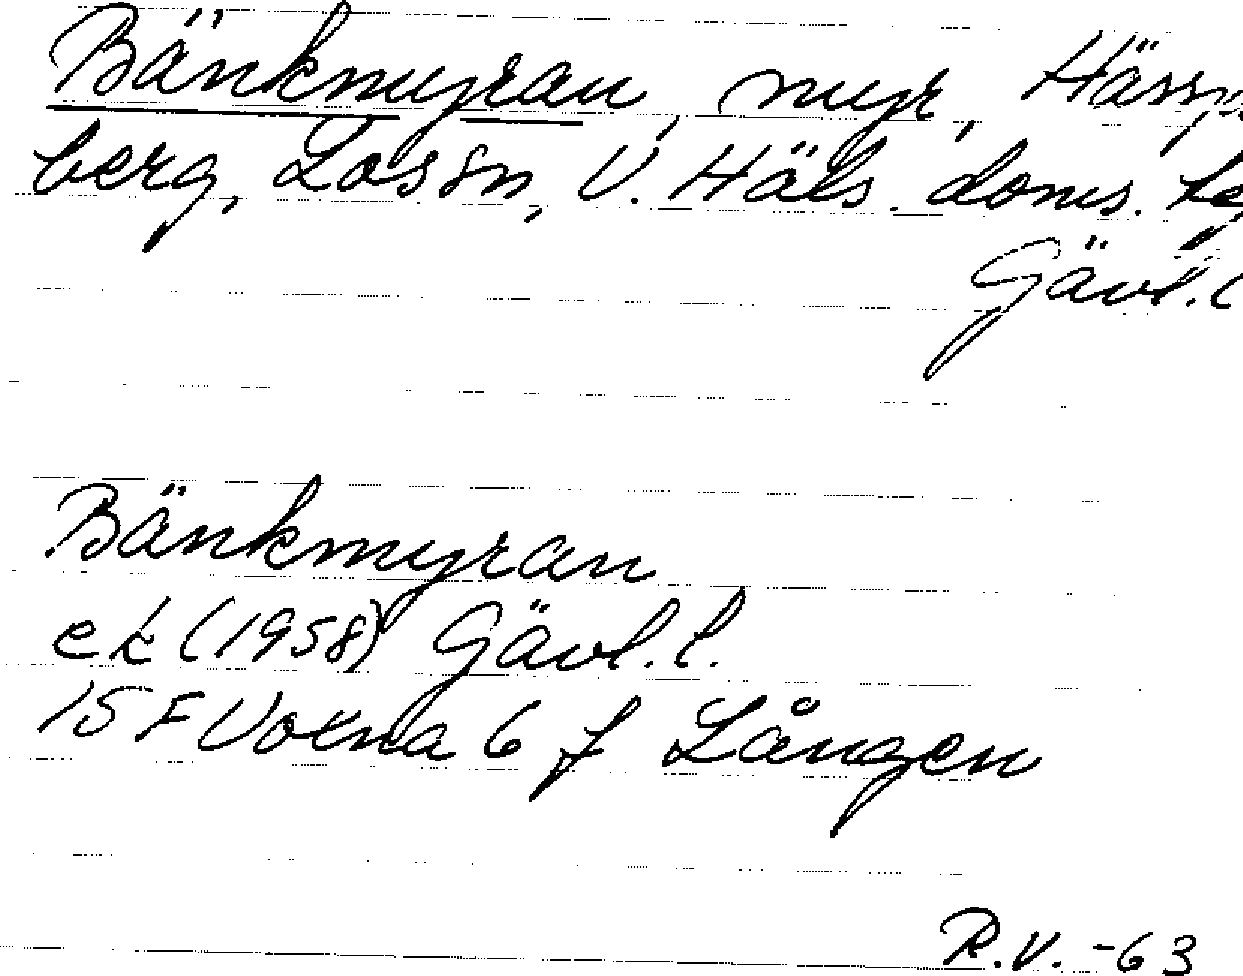 Bänkmyran, myr, Hässje
berg, Los sn, V. Häls. doms.
Gävl.
Bänkmyran
ek (1958) Gävl. l.
15 F Voxna 6 f Lången
R.V. -63